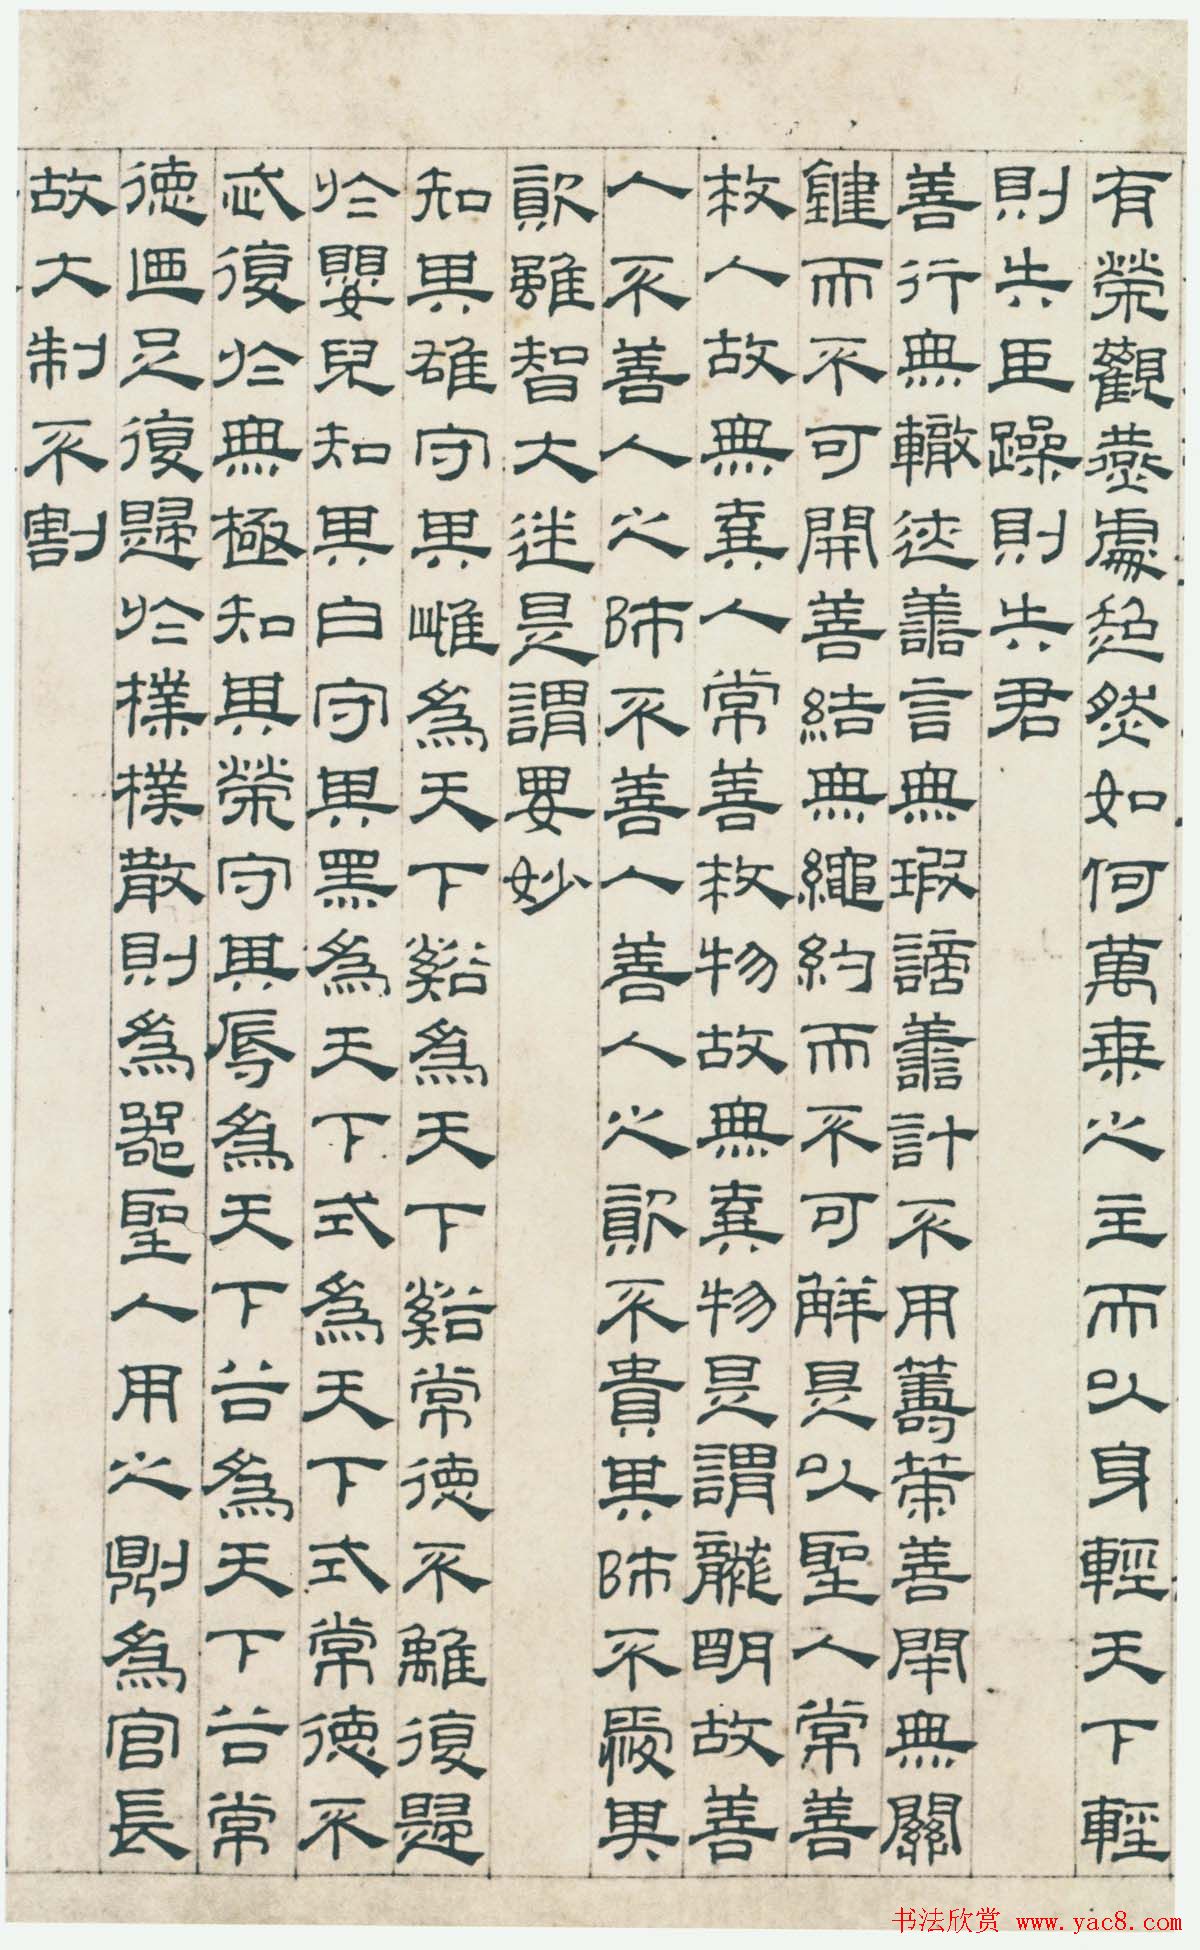 有榮觀燕處超然如何萬乗之主而以身輕天下輕
則失臣躁則失君
善行無轍迹譱言無瑕謫譱計不用籌策善閇無關
鍵而不可開善結無繩約而不可解是以聖人常善
救人故無棄人常善救物故無棄物是謂襲明故善
人不善人之師不善人善人之資不貴其師不愛其
資雖智大迷是謂要妙
知其雄守其雌爲天下谿爲天下谿常德不離復歸
於嬰兒知其白守其黑爲天下式爲天下式常德不
忒復於無極知其榮守其辱爲天下谷爲天下谷常
德廼足復歸於樸樸散則爲器聖人用之則爲官長
故大制不割
书法欣赏 www.yac8.com